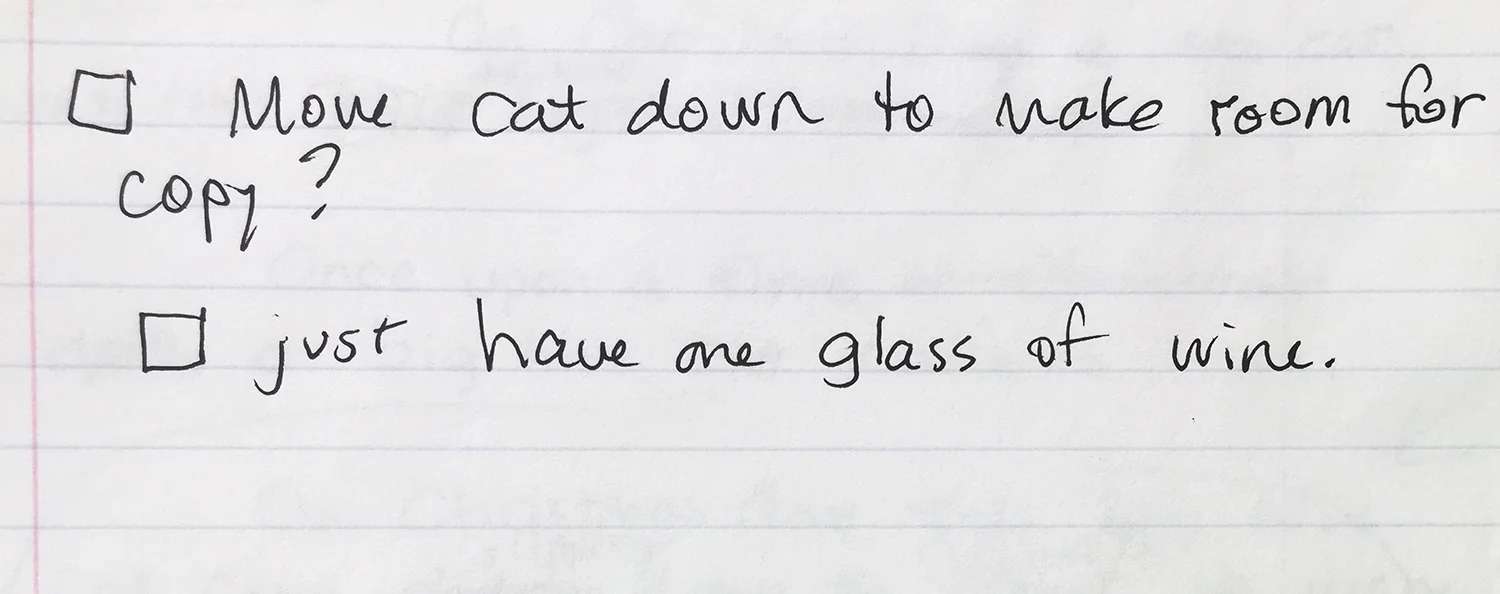 ☐ Move cat down to make room for
copy?
☐ just have one glass of wine.